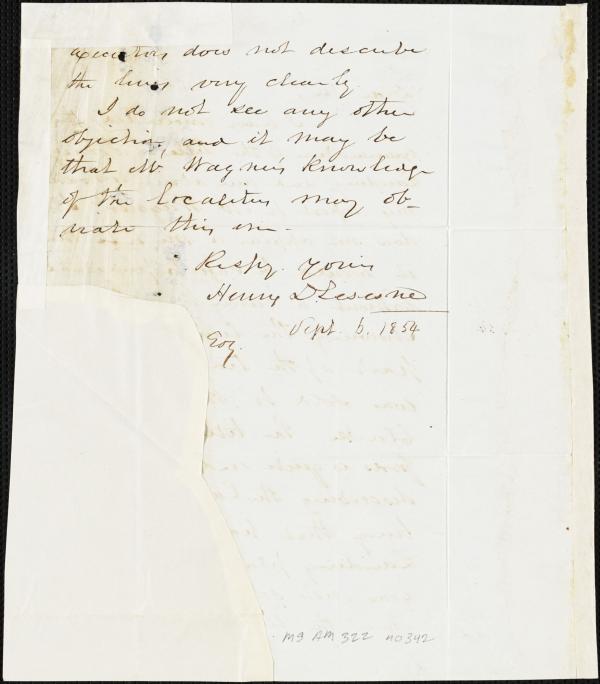 executors does not describe
the lines very clearly
I do not see any other
objection, and it may be
that Mr Wagner's knowledge
of the localities may ob-
viate this one.
Respy. yours
Henry D. Lesesne
Sept. 6, 1854
Esq.
MS AM 322 no 342